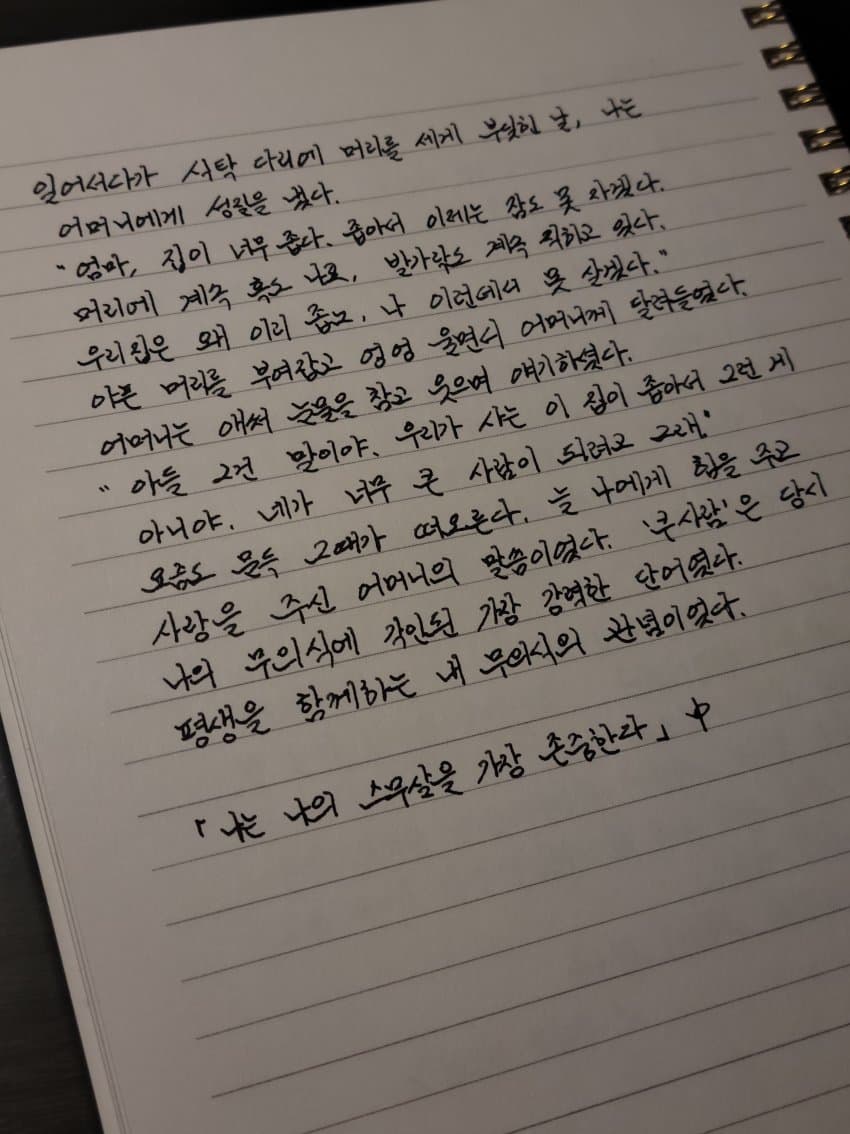 일어서다가 식탁 다리에 머리를 세게 부딪힌 날, 나는
어머니에게 성질을 냈다.
"엄마, 집이 너무 좁다. 좁아서 이제는 잠도 못 자겠다.
머리에 계속 혹도 나고, 발가락도 계속 찍히고 있다.
우리집은 왜 이리 좁노, 나 이런데서 못 살겠다."
아픈 머리를 부여잡고 엉엉 울면서 어머니께 달려들었다.
어머니는 애써 눈물을 참고 웃으며 얘기하셨다.
"아들 그건 말이야. 우리가 사는 이 집이 좁아서 그런 게
아니야. 네가 너무 큰 사람이 되려고 그래."
요즘도 문득 그때가 떠오른다. 늘 나에게 힘을 주고
사랑을 주신 어머니의 말씀이었다. '큰사람'은 당시
나의 무의식에 각인된 가장 강력한 단어였다.
평생을 함께하는 내 무의식의 관념이었다.
「나는 나의 스무살을 가장 존중한다」 中